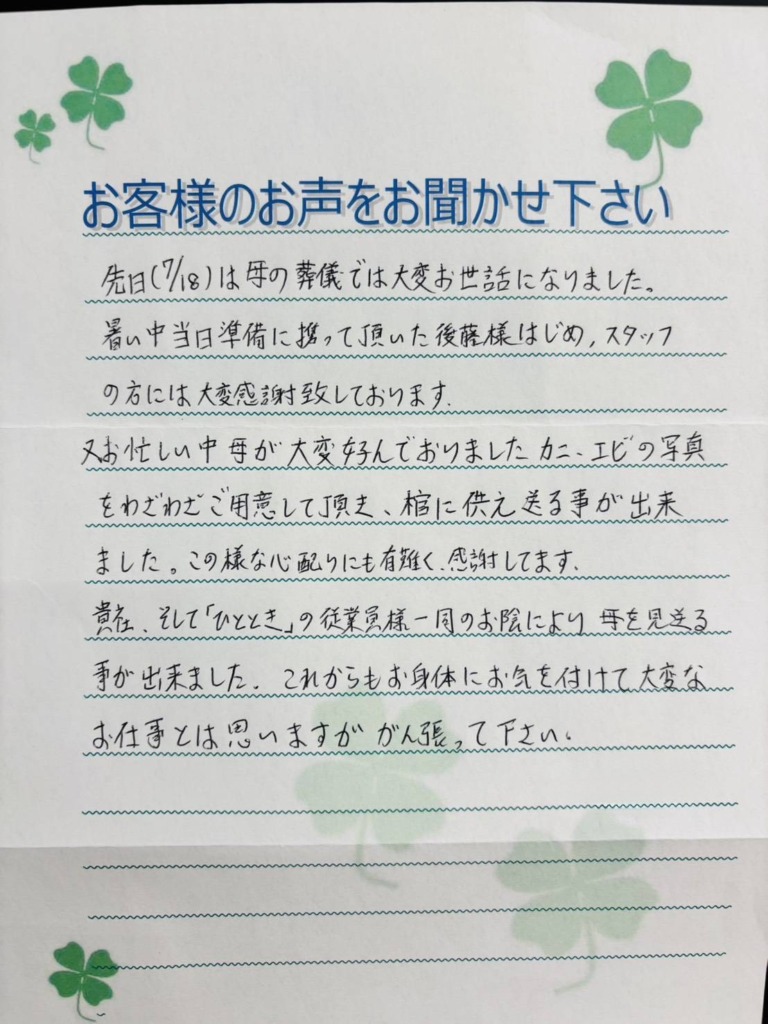 お客様のお声をお聞かせ下さい
先日(7/18)は母の葬儀では大変お世話になりました。
暑い中当日準備に携って頂いた後藤様はじめ,スタッフ
の方には大変感謝致しております.
又お忙しい中母が大変好んでおりましたカニ、エビの写真
をわざわざご用意して頂き、棺に供え送る事が出来
ました。この様な心配りにも有難く、感謝してます.
貴社、そして「ひととき」の従業員様一同のお陰により母を見送る
事が出来ました。これからもお身体にお気を付けて大変な
お仕事とは思いますががん張って下さい。